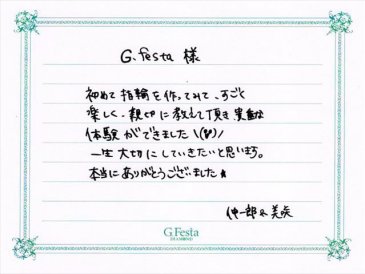 G.festa 様
初めて指輪を作ってみて、すごく
楽しく、親切に教えて頂き貴重な
体験ができました\(^^)/
一生大切にしていきたいと思います。
本当にありがとうございました☆
伸一郎&美咲
G.Festa
DIAMOND